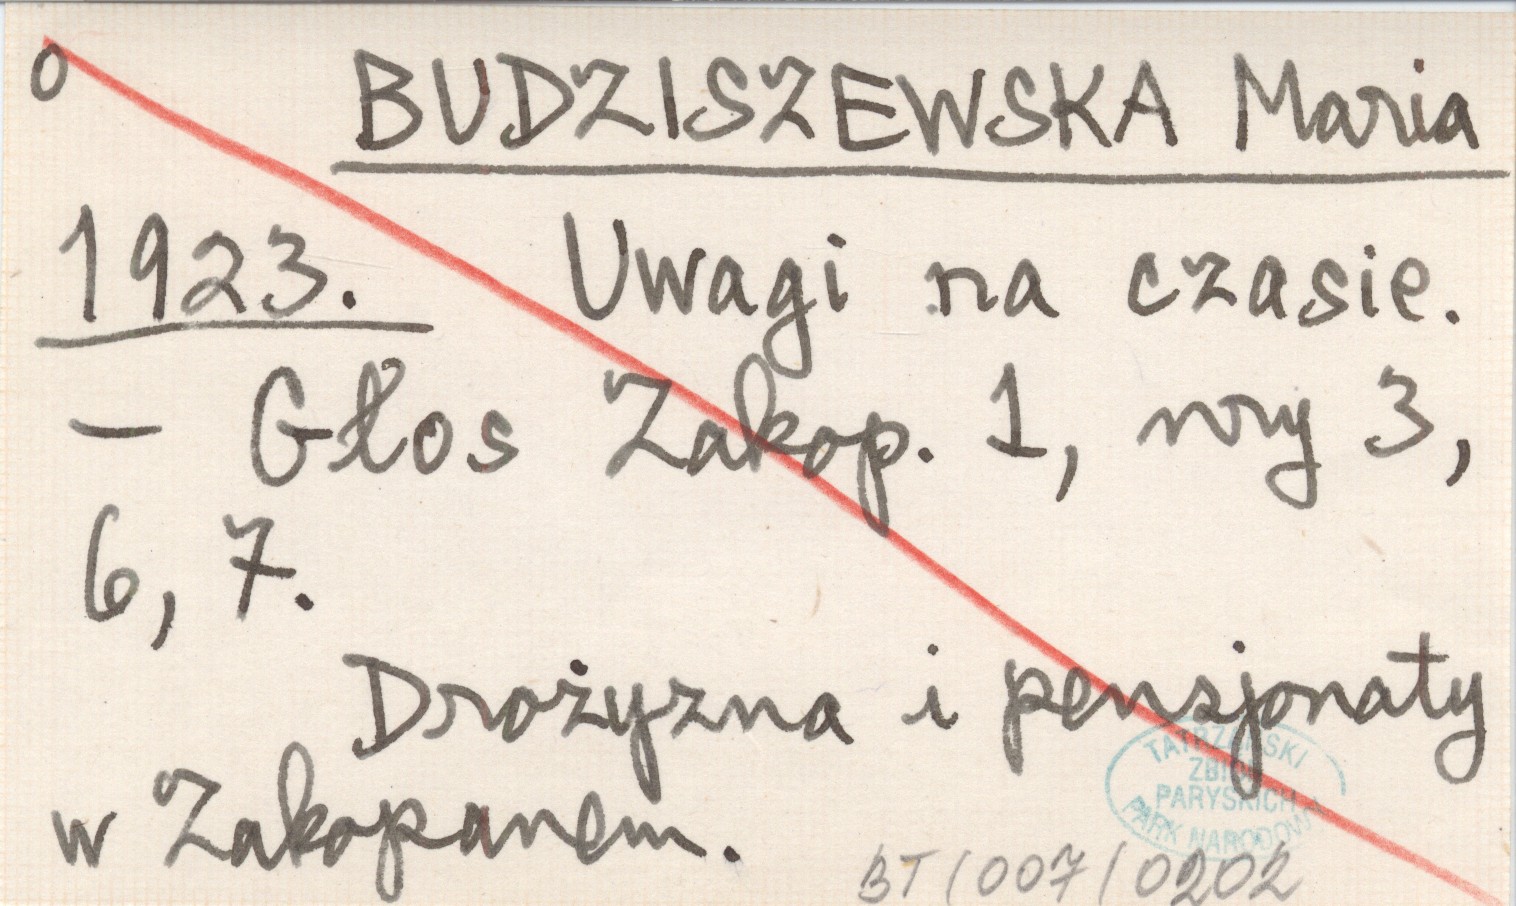 o BUDZISZEWSKA Maria
1923. Uwagi na czasie.
– Głos Zakop. 1, nry 3,
6, 7.
Drożyzna i pensjonaty
w Zakopanem.
TATRZAŃSKI
ZBIORY
PARYSKICH
PARK NARODOWY
BT/007/0202